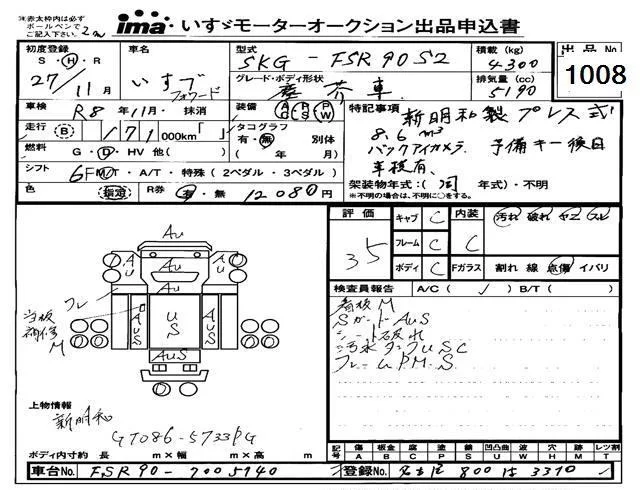 ※赤太枠内は必ず
ボールペンで
ご記入下さい。
ima いすゞモーターオークション出品申込書
初度登録 S・H・R 27/11月
車名 いすゞ フォワード
型式 SKG-FSR90S2
積載(kg) 4300
出品No 1008
グレード・ボディ形状 塵芥車
排気量(cc) 5190
車検 R8年11月・抹消
装備 AC PS PW
特記事項 新明和製プレス式
走行 (B) 171 000km「 」
タコグラフ 有・無 別体 ( 年 月)
8.6m³
バックアイカメラ. 予備キー後日
燃料 G・D・HV 他( )
車検有、
シフト 6F M/T・A/T・特殊(2ペダル・3ペダル)
架装物年式:( 年式)・不明
※不明の場合は、不明に○をする。
色 指定 R券 有・無 12080円
評価 3.5
キャブ C
内装 C
汚れ 破れ
フレーム C
ボディ C
Fガラス 割れ 線 点傷 イバリ
検査員報告 A/C( ✓ ) B/T( )
看板M
SガードAUS
シート破れ
汚水タンクUSC
フレームP.M.S
AU
AU
AU
AU
フレ
当板
補修
M
AUS
US
AUS
AUS
上物情報
新明和
GT086-5733PG
ボディ内寸約 長 m×幅 m×高 m
記号 傷 板金 腐 塗 錆 凹凸曲 波 穴 跡 レツ割
A B C P S U W H M T
車台No. FSR90-7005140
登録No. 名古屋 800 は 3370